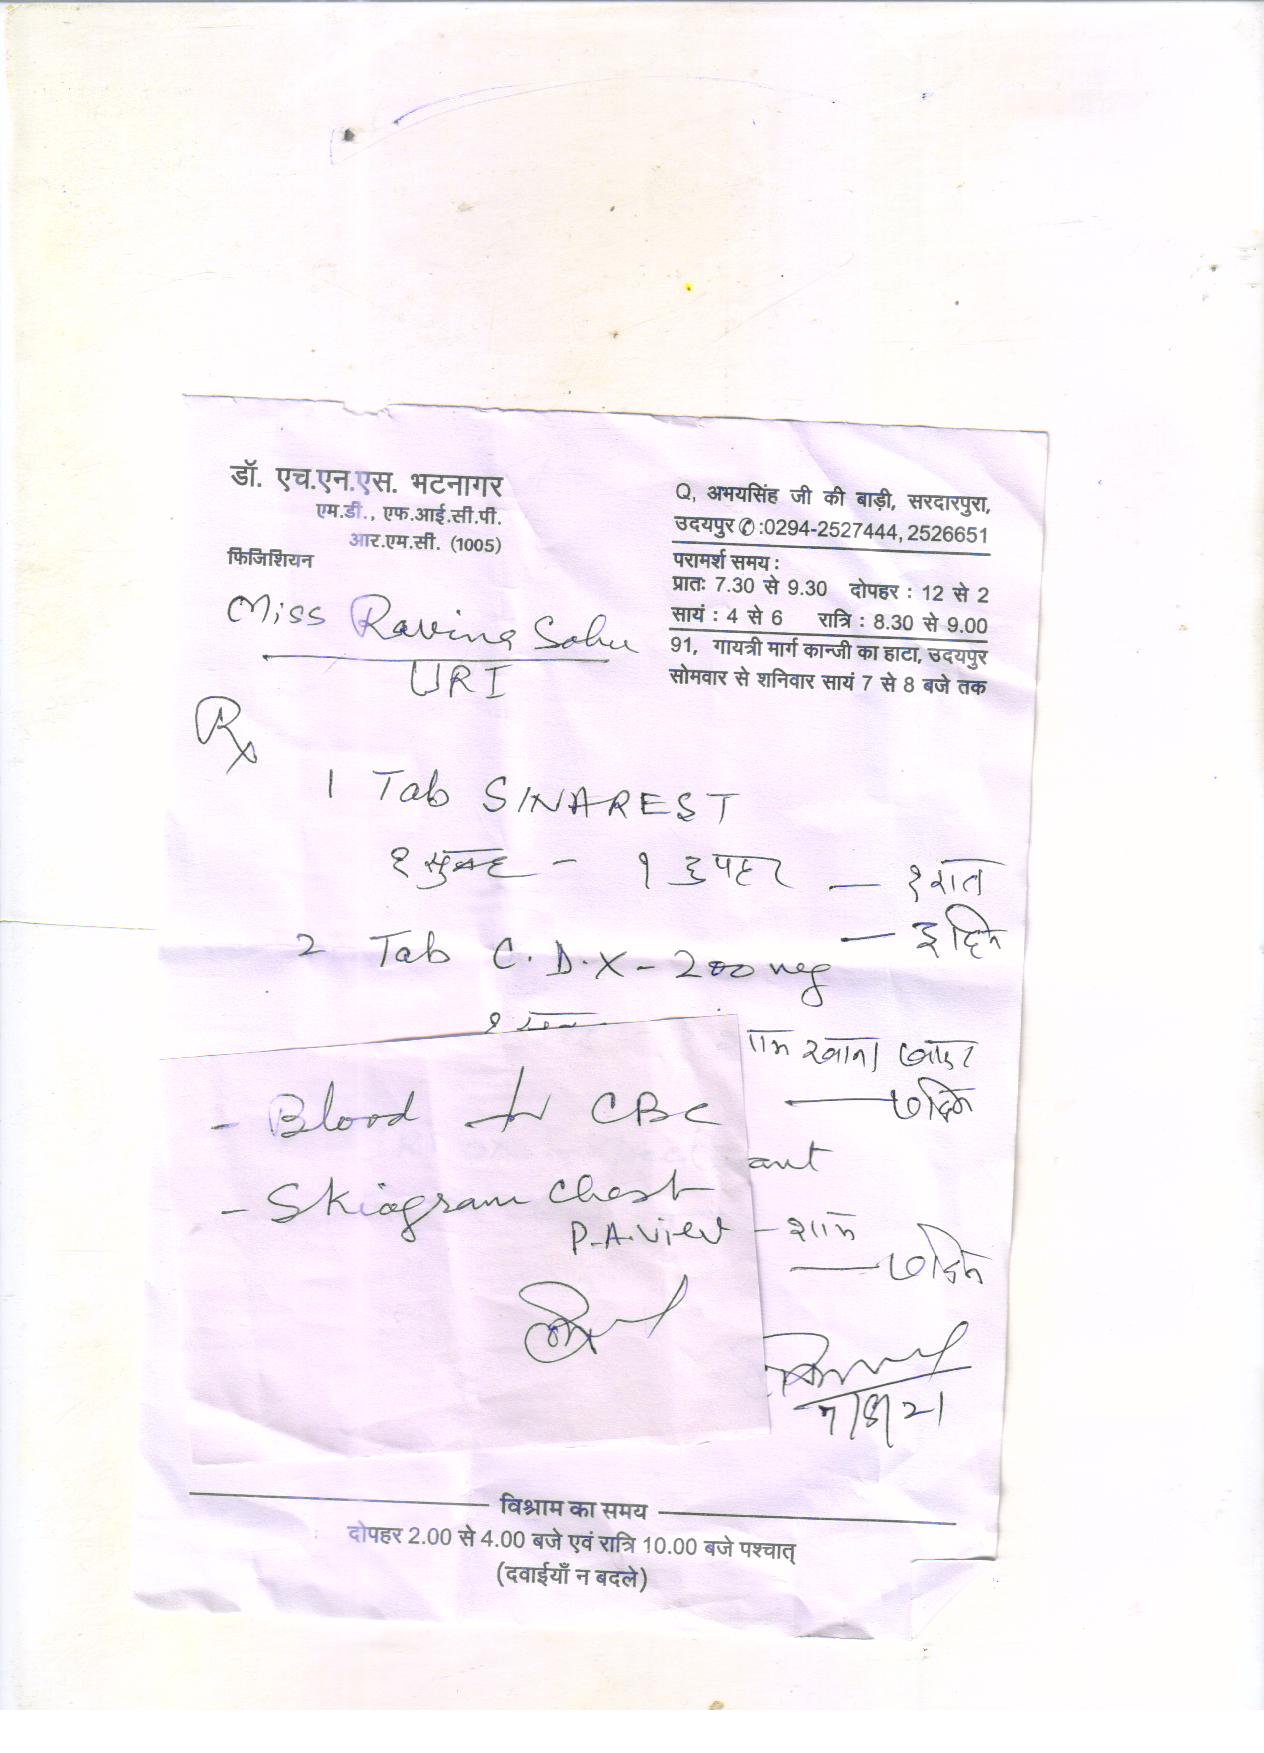 डॉ. एच.एन.एस. भटनागर
एम.डी., एफ.आई.सी.पी.
आर.एम.सी. (1005)
फिजिशियन
Q, अभयसिंह जी की बाड़ी, सरदारपुरा,
उदयपुर ✆:0294-2527444, 2526651
परामर्श समय :
प्रातः 7.30 से 9.30 दोपहर : 12 से 2
सायं : 4 से 6 रात्रि : 8.30 से 9.00
91, गायत्री मार्ग कान्जी का हाटा, उदयपुर
सोमवार से शनिवार सायं 7 से 8 बजे तक
Miss Ravina Sahu
URI
Rx
1 Tab SINAREST
१ सुबह - १ दुपहर - १ रात
- ३ दिन
2 Tab C.D.X - 200 mg
खाना खाकर
७ दिन
- Blood for CBC
- Skiagram Chest
P.A. View
- शाम
७ दिन
विश्राम का समय
दोपहर 2.00 से 4.00 बजे एवं रात्रि 10.00 बजे पश्चात्
(दवाईयाँ न बदले)